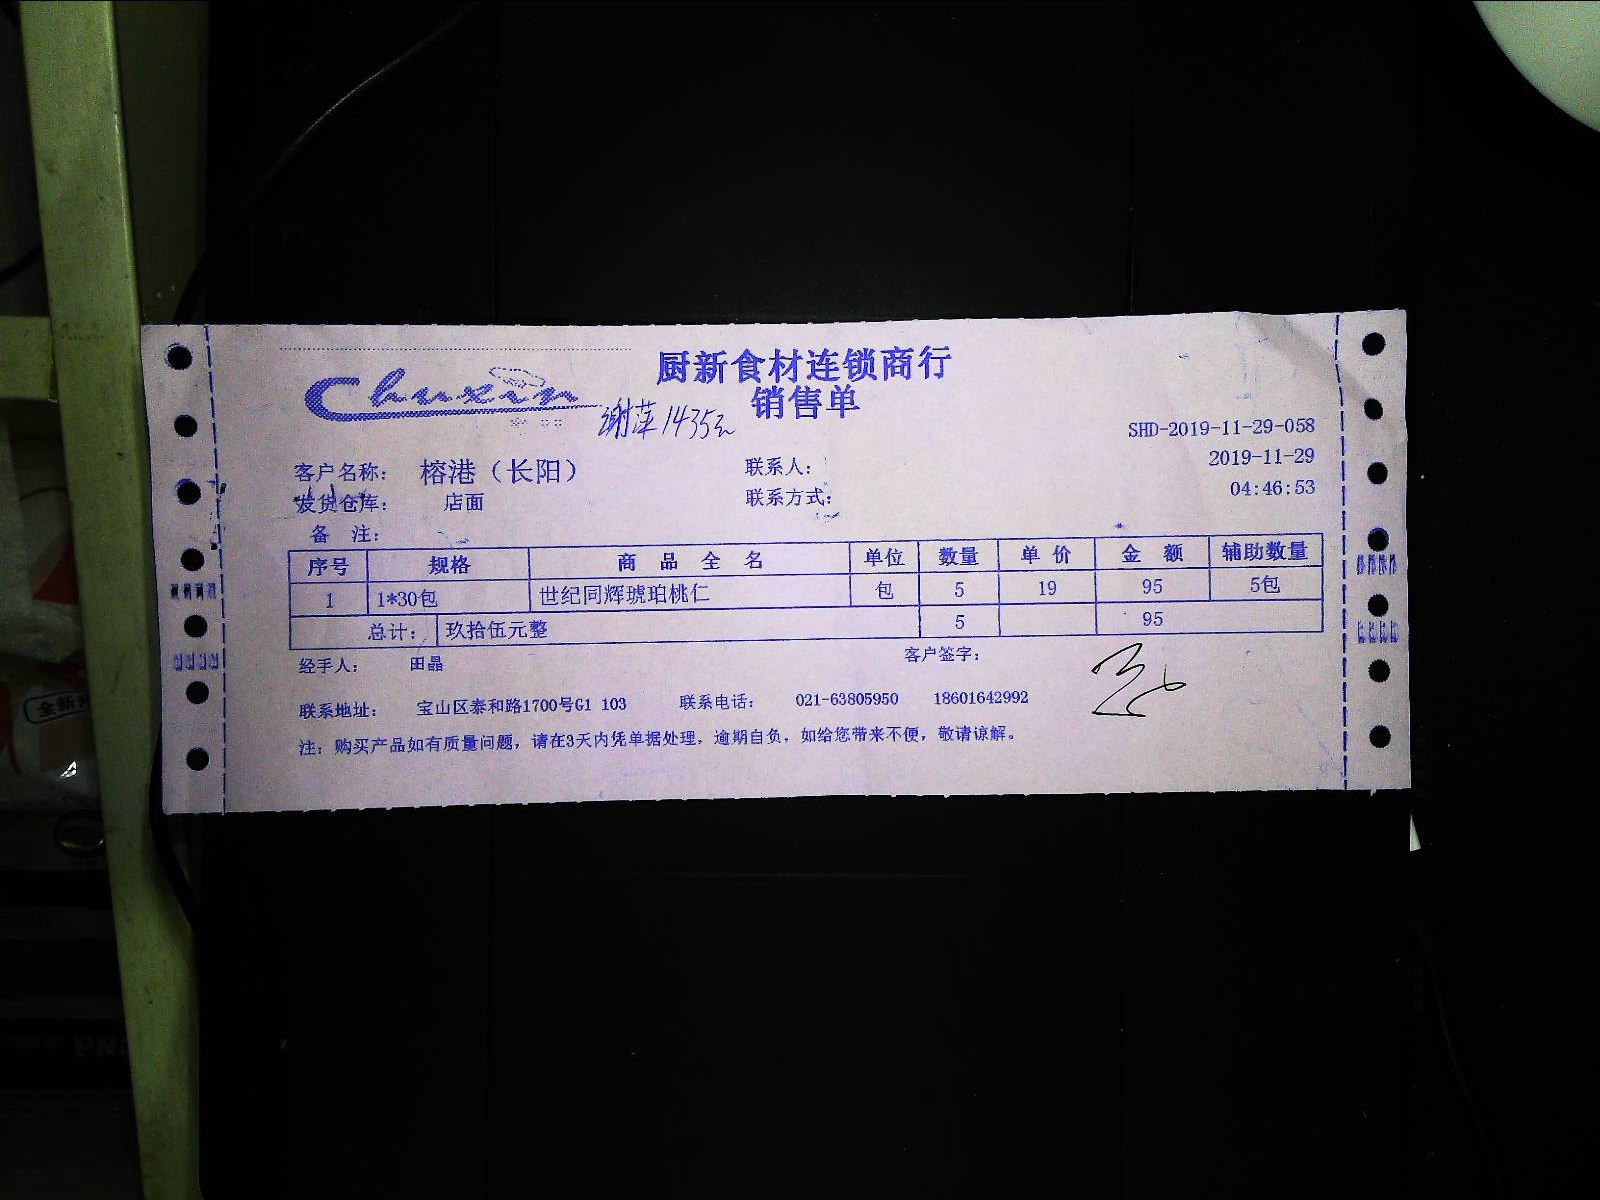 厨新食材连锁商行
Chuxin
销售单
谢萍1435元
SHD-2019-11-29-058
客户名称: 榕港（长阳） 联系人: 2019-11-29
发货仓库: 店面 联系方式: 04:46:53
备 注:
序号 规格 商 品 全 名 单位 数量 单 价 金 额 辅助数量
1 1*30包 世纪同辉琥珀桃仁 包 5 19 95 5包
总计: 玖拾伍元整 5 95
经手人: 田晶 客户签字:
联系地址: 宝山区泰和路1700号G1 103 联系电话: 021-63805950 18601642992
注: 购买产品如有质量问题, 请在3天内凭单据处理, 逾期自负, 如给您带来不便, 敬请谅解。
全新